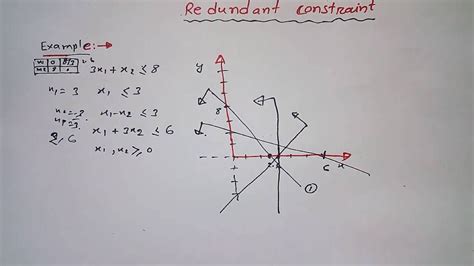 Redundant constraint
Example:→
x1 0 8/3
x2 8 0
3x1 + x2 ≤ 8
x1 = 3 x1 ≤ 3
x1 - x2 ≤ 3
x1 + 3x2 ≤ 6
2, 6
x1, x2 ≥ 0
y
8
6
x
①